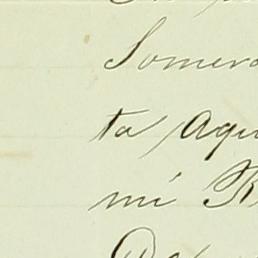 Somera
ta Aqu
mi R